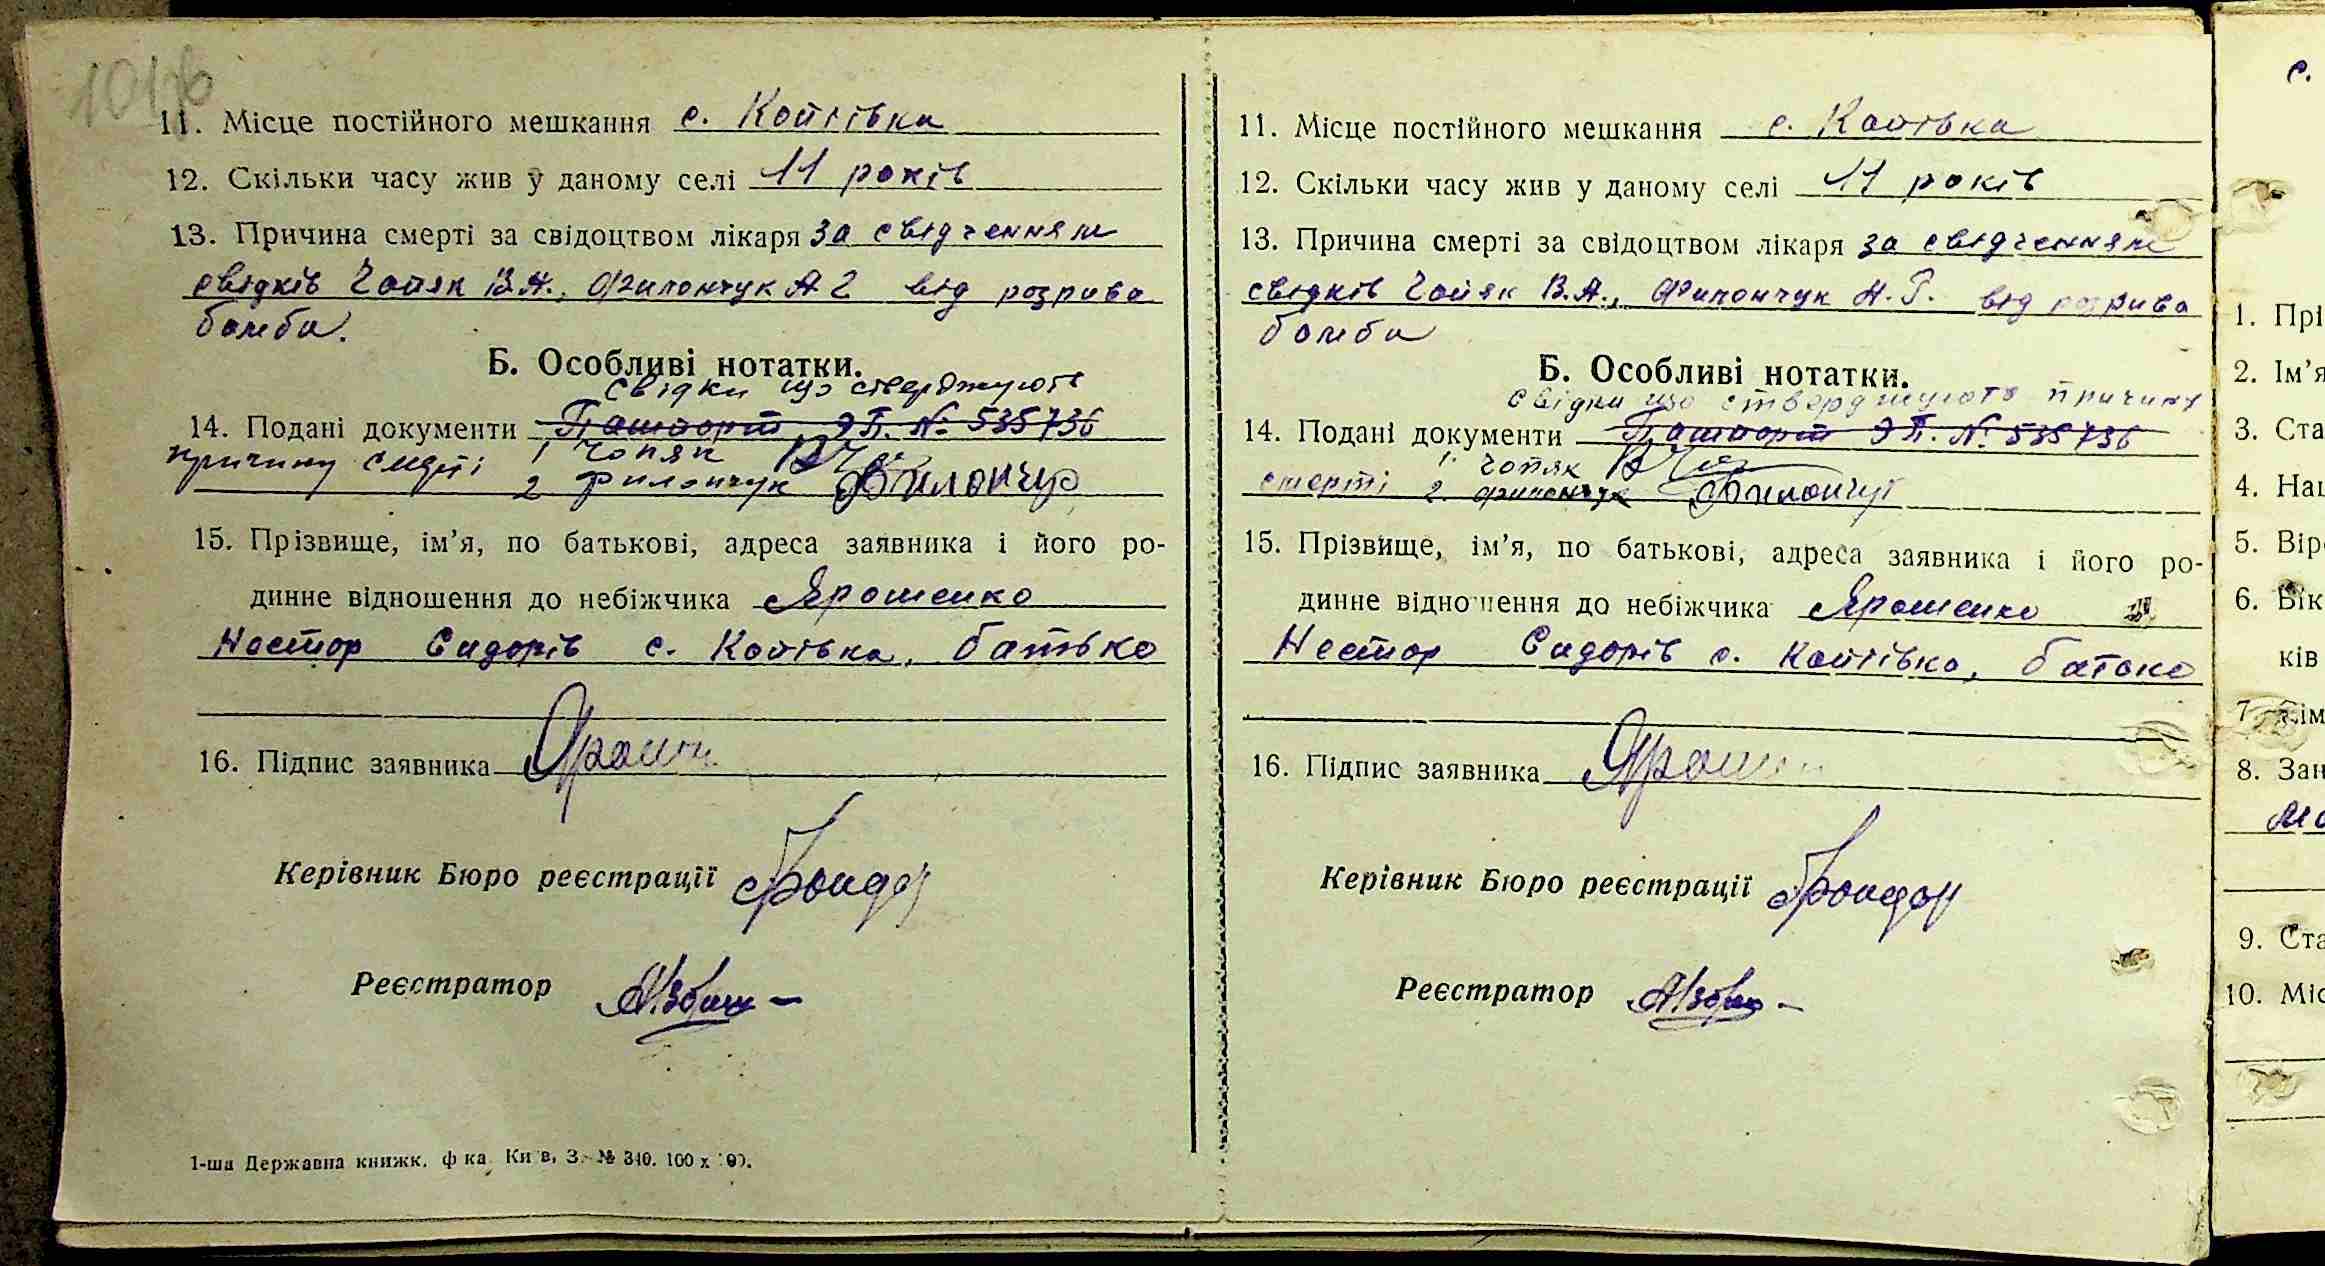 101зв
11. Місце постійного мешкання с. Копіївка
12. Скільки часу жив у даному селі 11 років
13. Причина смерті за свідоцтвом лікаря за свідченням
свідків Чопяк В.А., Филончук А Г від розрива
бомби.
Б. Особливі нотатки.
свідки що стверджують
14. Подані документи Пашпорт ЭП. № 535736
причину смерті 1 Чопяк
2 Филончук Филончук
15. Прізвище, ім'я, по батькові, адреса заявника і його ро-
динне відношення до небіжчика Ярошенко
Нестор Сидорів с. Копіївка, батько
16. Підпис заявника Ярош
Керівник Бюро реєстрації
Реєстратор
1-ша Державна книжк. ф-ка Київ, З. № 340. 100 х
11. Місце постійного мешкання с. Копіївка
12. Скільки часу жив у даному селі 11 років
13. Причина смерті за свідоцтвом лікаря за свідченням
свідків Чопяк В.А., Филончук А.Г. від розрива
бомби
Б. Особливі нотатки.
свідки що стверджують причину
14. Подані документи Пашпорт ЭП. № 535736
смерті 1. Чопяк
2. Филончук Филончук
15. Прізвище, ім'я, по батькові, адреса заявника і його ро-
динне відношення до небіжчика Ярошенко
Нестор Сидорів с. Копіївка, батько
16. Підпис заявника Ярош
Керівник Бюро реєстрації
Реєстратор
с.
1. Прі
2. Ім'я
3. Ста
4. Нац
5. Віро
6. Вік
ків
7. Сім
8. Зан
9. Ста
10. Міс